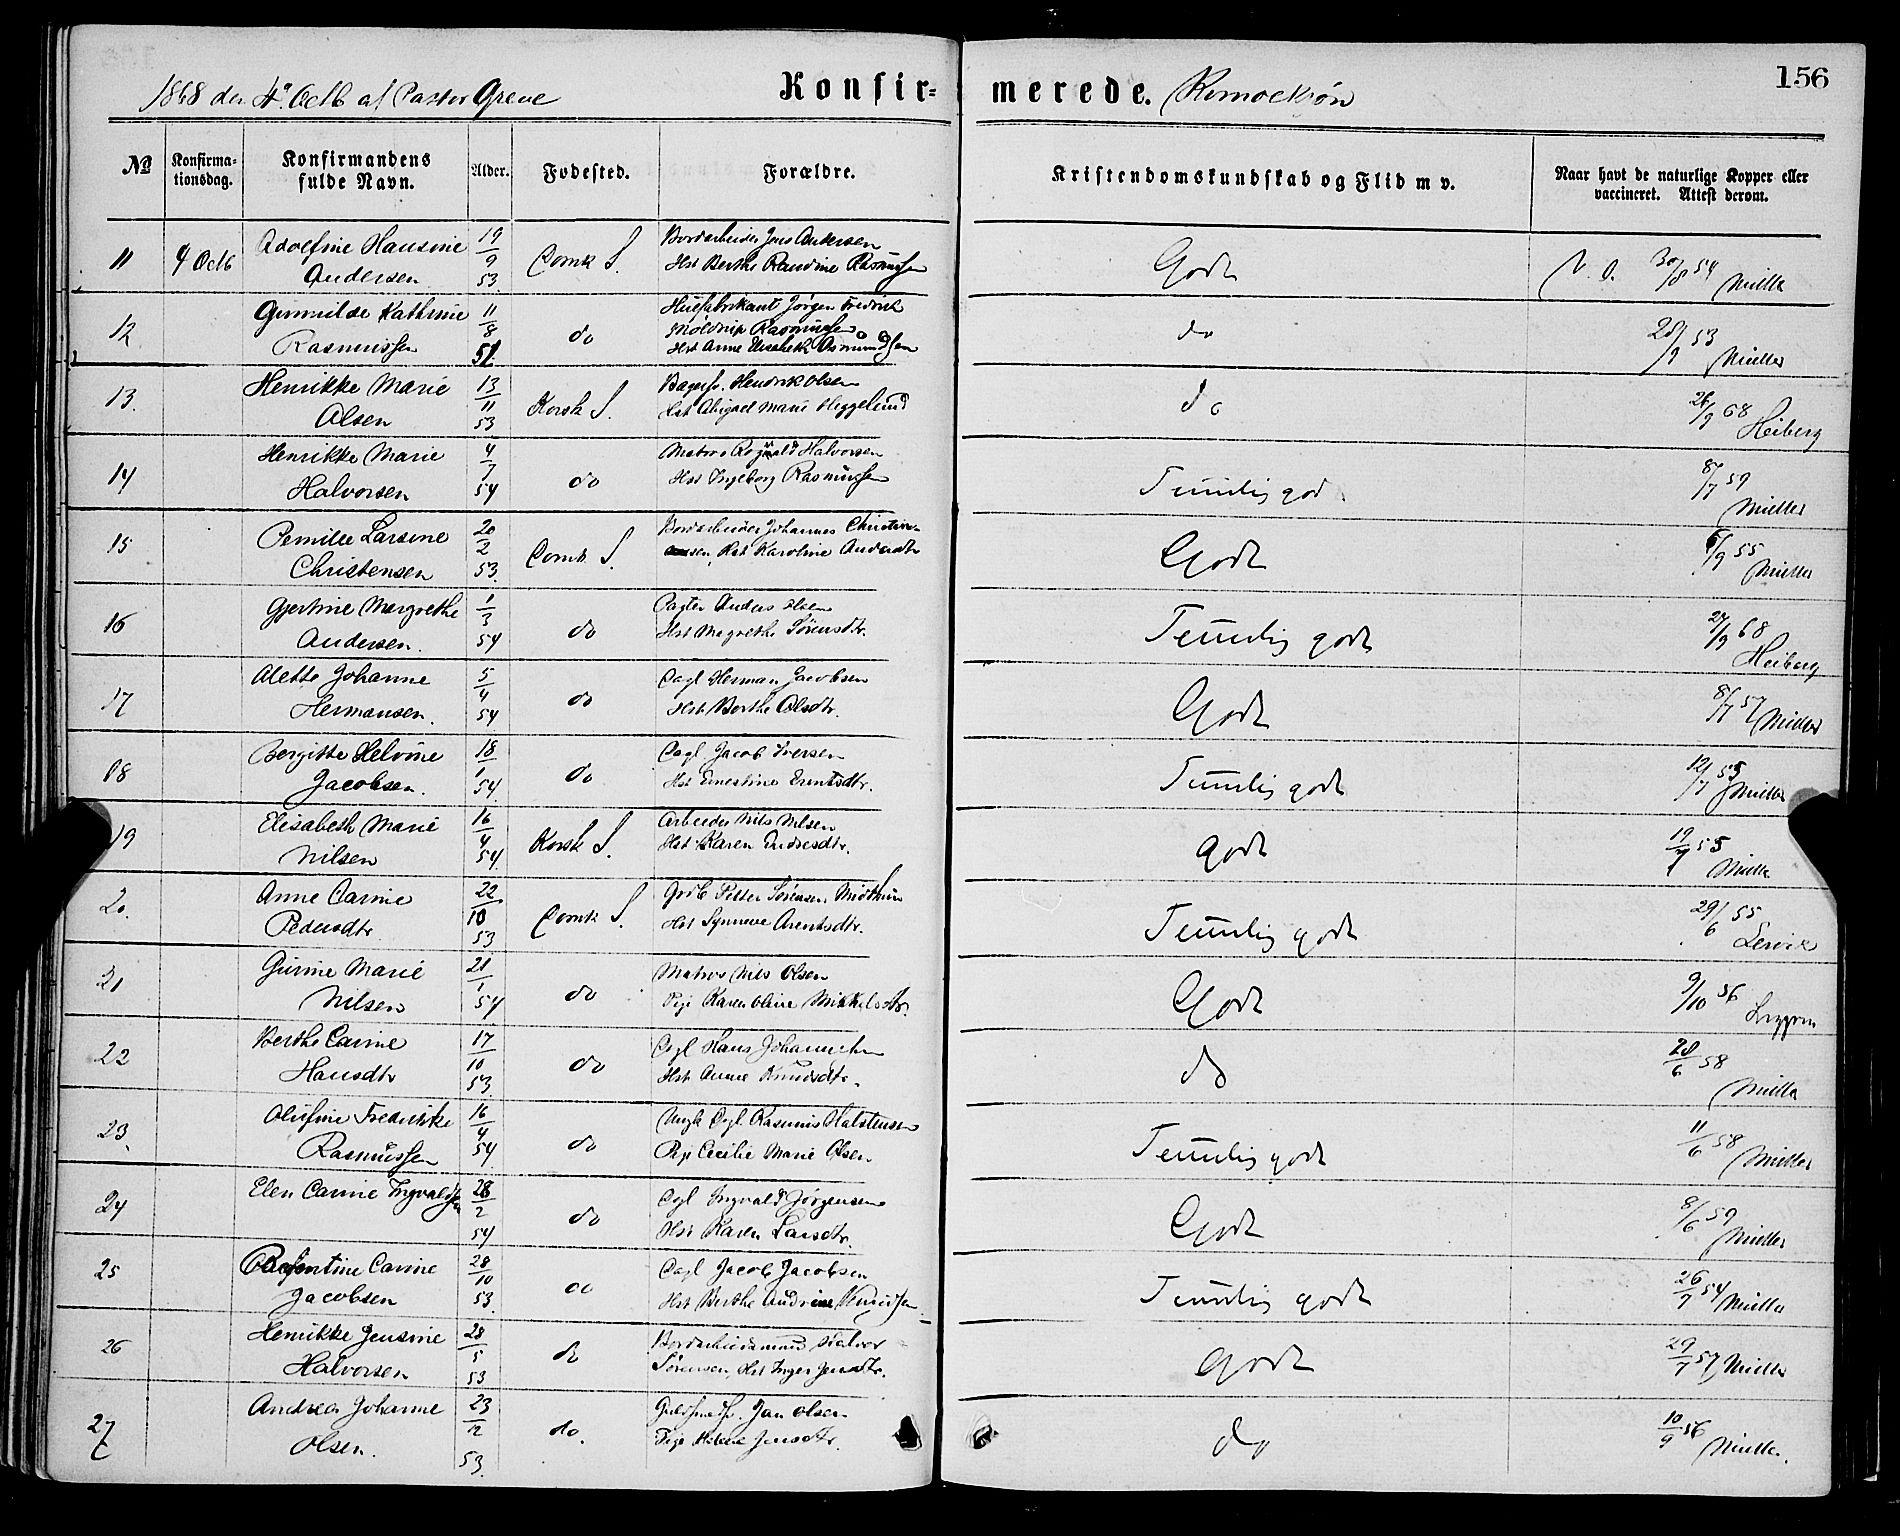 1868 den 4de Octb af Pastor Greve
Konfir=
merede.
156
No
Konfirma-
tionsdag.
Konfirmandens
fulde Navn.
Alder.
Fødested.
Forældre.
Kristendomskundskab og Flid m v.
Naar havt de naturlige Kopper eller
vaccineret. Attest derom.
11 4 Octb Adolfine Hansine 19/9 53 Domk S. Bordarbeider Jens Andersen
Andersen Hst Berthe Randine Rasmussen
Godt 30/8 54 Müller
12 Gunnilde Kathrine 11/8 51. do Jørgen Fredrik
Rasmussen Rasmussen
Hst Anne Elisabeth Osmundsen
do 28/9 53 Müller
13. Henrikke Marie 13/11 53 Korsk S. Bagersv. Hendrik Olsen
Olsen Hst Abigael Marie Heggelund
do 26/9 68 Heiberg
14 Henrikke Marie 4/7 54 do Matros Rognald Halvorsen
Halvorsen Hst Ingeborg Rasmussen
Temlig god 8/7 59 Müller
15 Pernille Larsine 20/2 53. Domk S. Bordarbeider Johannes Christian-
Christensen sen, Hst Karoline Andersdtr
Godt 5/9 55 Müller
16 Gjertine Margrethe 1/3 54 do Anders Olsen
Andersen. Hst Magrethe Sørensdtr.
Temlig godt 27/9 68 Heiberg
17 Alette Johanne 5/4 54 do Dagl Herman Jacobsen
Hermansen. Hst Berthe Olsdtr.
Godt 8/7 57 Müller
18 Bergitte Helvine 18/1 54. do Dagl Jacob Iversen
Jacobsen. Hst Ernestine
Temlig godt 12/7 55 Müller
19 Elisabeth Marie 16/4 54. Korsk S. Arbeider Nils Nilsen
Nilsen Hst Karen
godt 19/7 55 Müller
20. Anne Carine 22/10 53 Domk S. Petter Sørensen Midthun
Pedersdtr Hst Synneve Arentsdtr.
Temlig godt 29/6 55
21 Gurine Marie 21/1 54 do Matros Nils Olsen
Nilsen Pige Karen Oline Mikkelsdtr.
Godt 9/10 56
22 Berthe Carine 17/10 53. do Dgl Hans Johannesen
Hansdtr Hst Anne Knudsdtr.
do 28/6 58 Müller
23. Olufine Fredrikke 16/4 54 do Ungk Dgl. Rasmus Halstensen
Rasmussen Pige Cecilie Marie Olsen
Temlig godt 11/6 58 Müller
24 Elen Carine Ingvaldsen 28/2 54 do Dgl Ingvald Jørgensen
Hst Karen Larsdtr.
Godt 8/6 59 Müller
25 Carine 28/10 53. do Dagl Jacob Jacobsen
Jacobsen Hst Berthe Andrine Knudsen
Temlig godt 26/7 54 Müller
26 Henrikke Jensine 28/5 53 do Bordarbeidsmand Halvor
Halvorsen Sørensen, Hst Inger Jensdtr.
godt 29/7 57 Müller
27 Andrea Johanne 23/12 53. do. Guldsmedsv. Jan Olsen
Olsen. Pige Jensdtr.
do 10/9 56 Müller.